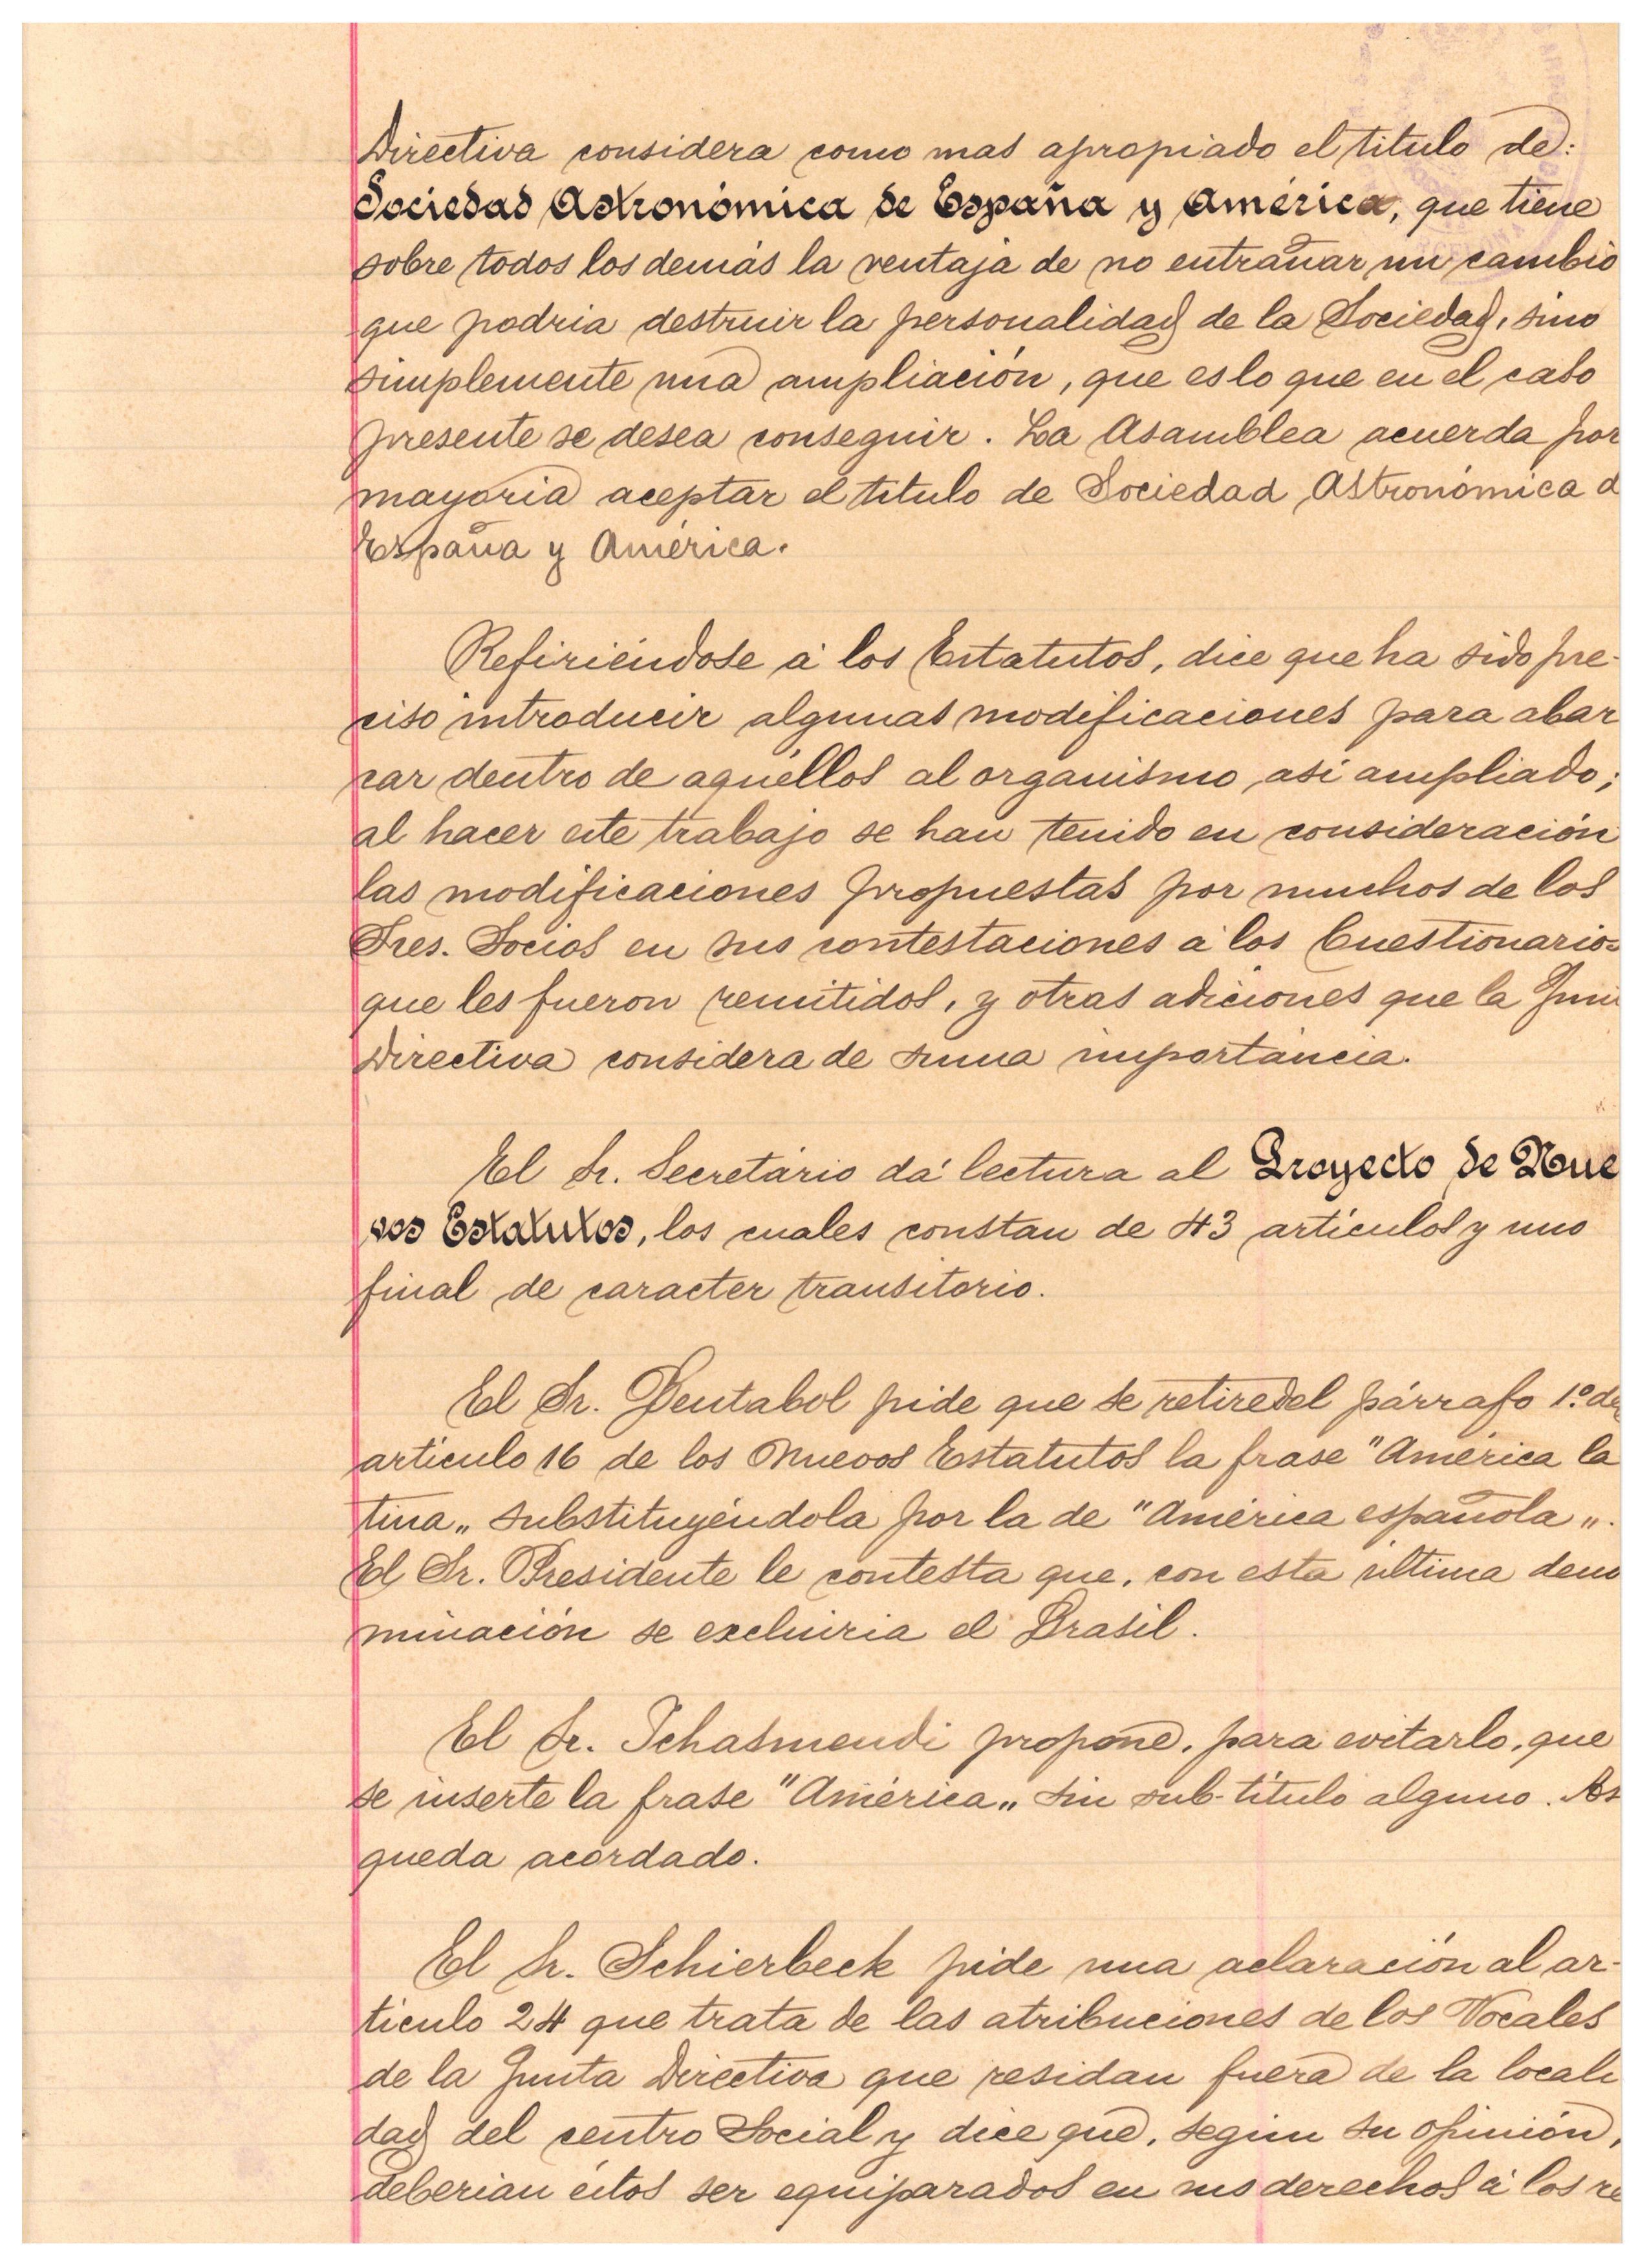 Directiva considera como mas apropiado el titulo de:
Sociedad Astronómica de España y América, que tiene
sobre todos los demás la ventaja de no entrañar un cambio
que podria destruir la personalidad de la Sociedad, sino
simplemente una ampliación, que es lo que en el caso
presente se desea conseguir. La Asamblea acuerda por
mayoria aceptar el titulo de Sociedad Astronómica d
España y América.
Refiriéndose á los Estatutos, dice que ha sido pre-
ciso introducir algunas modificaciones para abar
car dentro de aquéllos al organismo asi ampliado;
al hacer este trabajo se han tenido en consideración
las modificaciones propuestas por muchos de los
Sres. Socios en sus contestaciones á los Cuestionarios
que les fueron remitidos, y otras adiciones que la Jun
Directiva considera de suma importáncia.
El Sr. Secretário dá lectura al Proyecto de Nue
vos Estatutos, los cuales constan de 43 artículos y uno
final de caracter transitorio.
El Sr. Pentabol pide que se retire del párrafo 1.º de
articulo 16 de los Nuevos Estatutos la frase "América la
tina„ substituyéndola por la de "América española„.
El Sr. Presidente le contesta que, con esta última deno
minación se excluiria el Brasil.
El Sr. Ichasmendi propone, para evitarlo, que
se inserte la frase "América„ sin sub-título alguno. As
queda acordado.
El Sr. Schierbeck pide una aclaración al ar-
ticulo 24 que trata de las atribuciones de los Vocales
de la Junta Directiva que residan fuera de la locali
dad del centro Social y dice que, según su opinión,
deberian éstos ser equiparados en sus derechos á los re